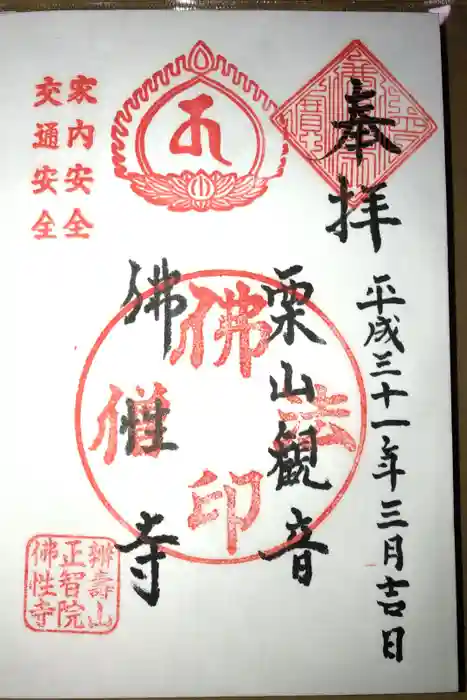 奉拝
平成三十一年三月吉日
栗山観音
佛性寺
佛法僧印
家内安全
交通安全
山
正智院
佛性寺